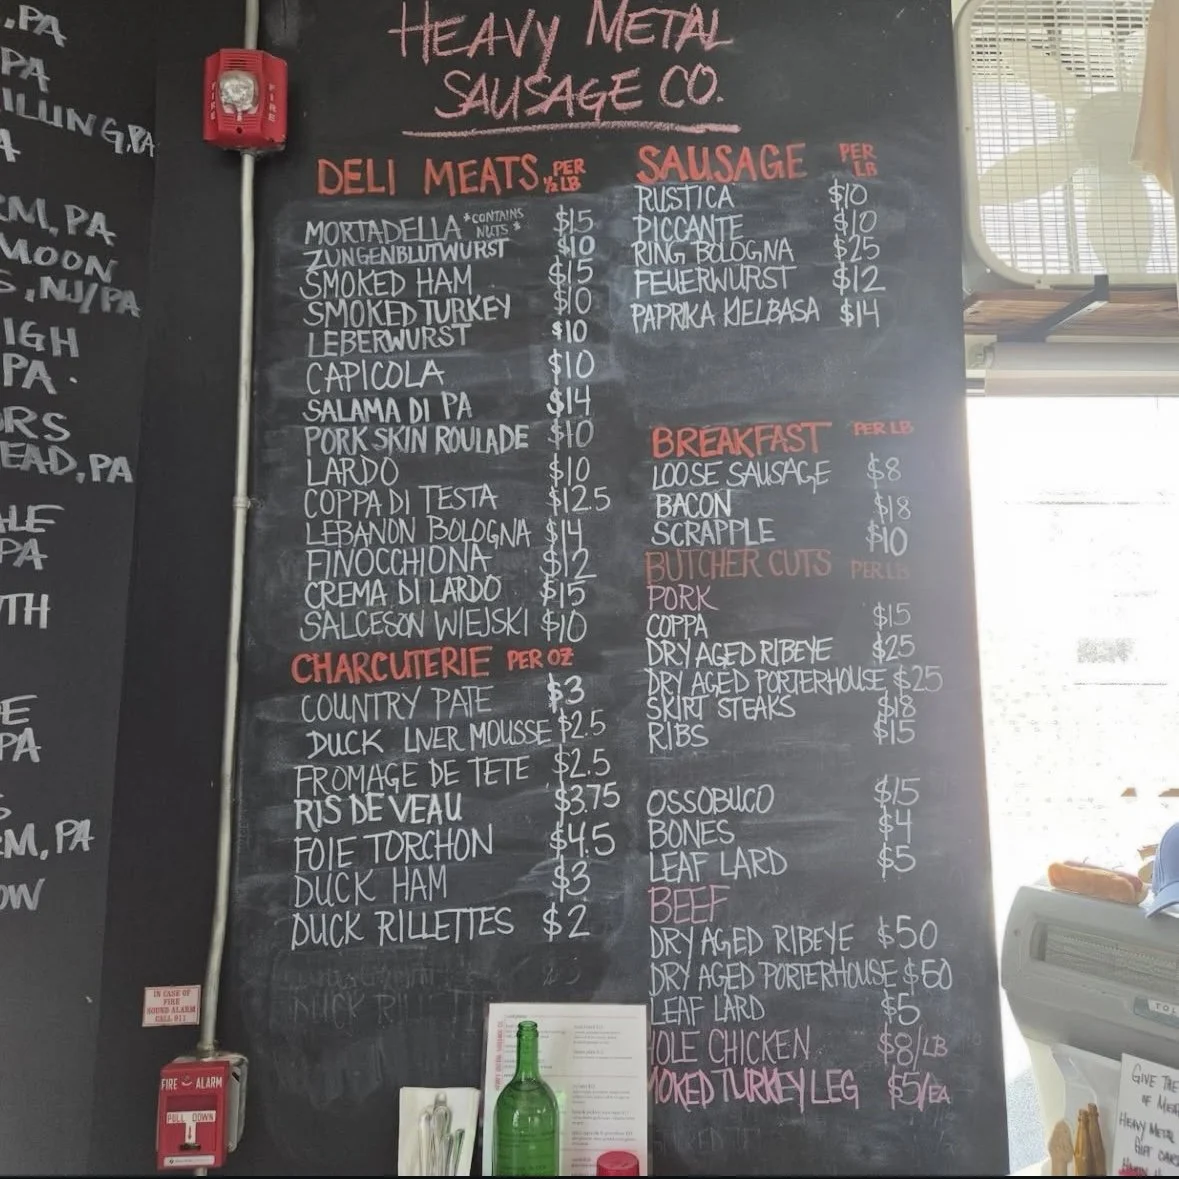 , PA
PA
ILLING, PA
A
RM, PA
MOON
S, NJ/PA
IGH
PA.
ORS
EAD, PA
ALE
PA
TH
E
PA
S
RM, PA
OW
FIRE
FIRE
IN CASE OF
FIRE
SOUND ALARM
CALL 911
FIRE ALARM
PULL DOWN
HEAVY METAL
SAUSAGE CO.
DELI MEATS PER ½ LB
MORTADELLA *CONTAINS NUTS* $15
ZUNGENBLUTWURST $10
SMOKED HAM $15
SMOKED TURKEY $10
LEBERWURST $10
CAPICOLA $10
SALAMA DI PA $14
PORK SKIN ROULADE $10
LARDO $10
COPPA DI TESTA $12.5
LEBANON BOLOGNA $14
FINOCCHIONA $12
CREMA DI LARDO $15
SALCESON WIEJSKI $10
CHARCUTERIE PER OZ
COUNTRY PATE $3
DUCK LIVER MOUSSE $2.5
FROMAGE DE TETE $2.5
RIS DE VEAU $3.75
FOIE TORCHON $4.5
DUCK HAM $3
DUCK RILLETTES $2
DUCK RILL
SAUSAGE PER LB
RUSTICA $10
PICCANTE $10
RING BOLOGNA $25
FEUERWURST $12
PAPRIKA KIELBASA $14
BREAKFAST PER LB
LOOSE SAUSAGE $8
BACON $18
SCRAPPLE $10
BUTCHER CUTS PER LB
PORK
COPPA $15
DRY AGED RIBEYE $25
DRY AGED PORTERHOUSE $25
SKIRT STEAKS $18
RIBS $15
OSSOBUCO $15
BONES $4
LEAF LARD $5
BEEF
DRY AGED RIBEYE $50
DRY AGED PORTERHOUSE $50
LEAF LARD $5
HOLE CHICKEN $8/LB
MOKED TURKEY LEG $5/EA
GIVE THE
OF MEA
HEAVY METAL
GIFT CAR